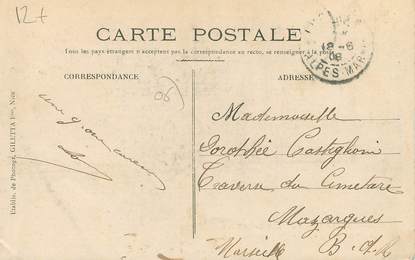 12+
CARTE POSTALE
Tous les pays étrangers n'acceptent pas la correspondance au recto, se renseigner à la poste
CORRESPONDANCE
ADRESSE
18-6
08
ALPES MAR
06
Mademoiselle
Dorophée Castighoni
Traverse du Cimetare
Mazargues
Marseille B.d.R
Etablis. de Photogr. GILETTA Fres, Nice